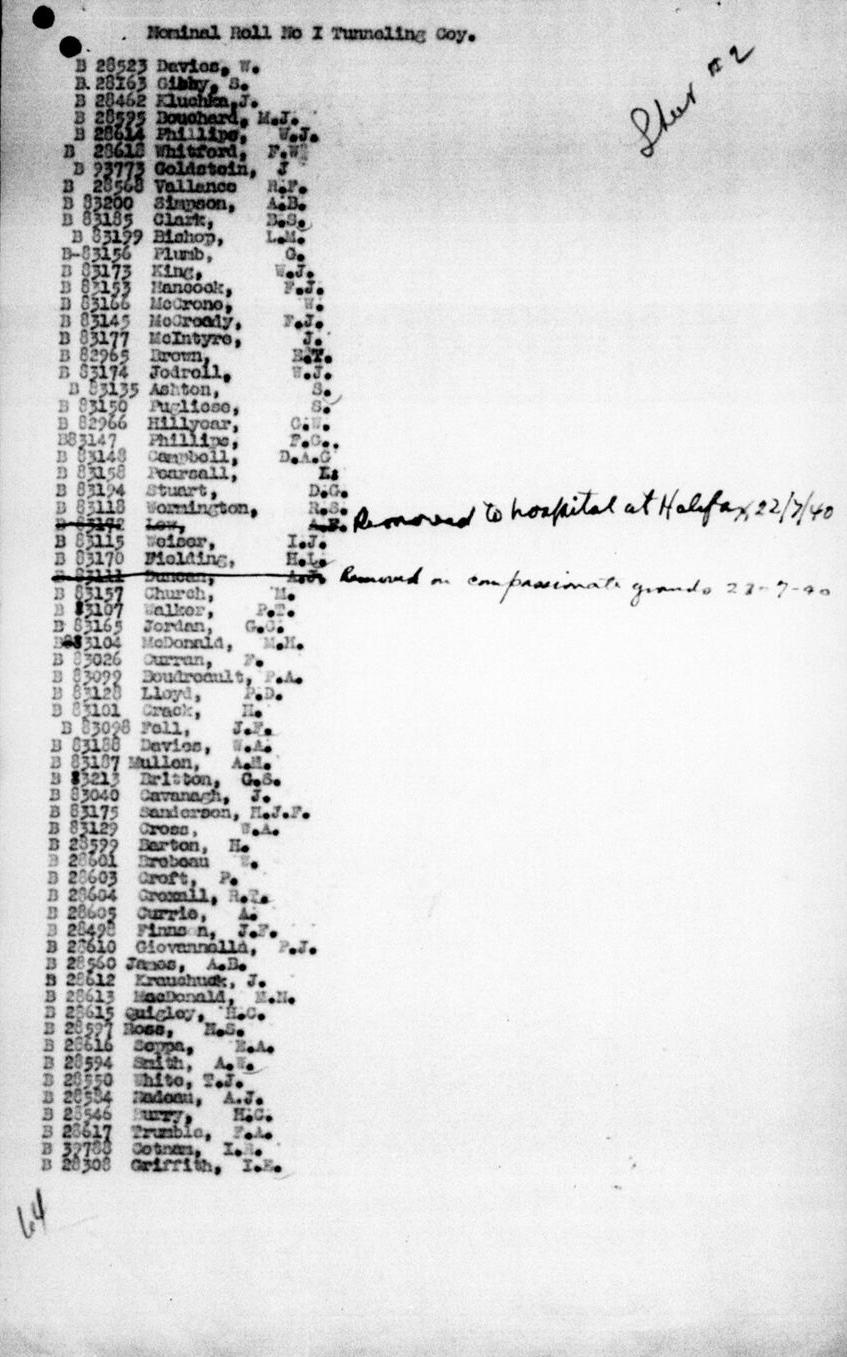 Nominal Roll No I Tunneling Coy.
Sheet # 2
B 28523 Davies, W.
B. 28163 Gibby, S.
B 28462 Kluchka, J.
B 28595 Bouchard, M.J.
B 28614 Phillips, W.J.
B 28618 Whitford, F.W
B 93773 Goldstein, J
B 28568 Vallance R.F.
B 83200 Simpson, A.B.
B 83185 Clark, B.S.
B 83199 Bishop, L.M.
B-83156 Plumb, G.
B 83173 King, W.J.
B 83153 Hancock, F.J.
B 83166 McCrone, W.
B 83145 McCready, F.J.
B 83177 McIntyre, J.
B 82965 Brown, E.T.
B 83174 Jodroil, W.J.
B 83135 Ashton, S.
B 83150 Pugliese, S.
B 82966 Hillyear, C.W.
B83147 Phillips, F.G..
B 83148 Campbell, D.A.G
B 83158 Pearsall, L.
B 83194 Stuart, D.G.
B 83118 Wormington, R.S.
B 83172 Low, A.F. Removed to hospital at Halifax, 22/7/40
B 83115 Weiser, I.J.
B 83170 Fielding, H.L.
B 83111 Duncan, A.J. Removed on compassionate grounds 23-7-40
B 83157 Church, M.
B 83107 Walker, P.T.
B 83165 Jordan, G.C.
B 83104 McDonald, M.H.
B 83026 Curran, F.
B 83099 Boudreault, P.A.
B 83128 Lloyd, P.D.
B 83101 Crack, H.
B 83098 Fell, J.F.
B 83188 Davies, W.A.
B 83187 Mullen, A.H.
B 83213 Britton, G.S.
B 83040 Cavanagh, J.
B 83175 Sanderson, H.J.F.
B 83129 Cross, W.A.
B 28599 Barton, H.
B 28601 Brebeau W.
B 28603 Croft, P.
B 28604 Croxall, R.T.
B 28605 Currie, A.
B 28498 Finnson, J.F.
B 28610 Giovannella, P.J.
B 28560 James, A.B.
B 28612 Krauchuck, J.
B 28613 MacDonald, M.N.
B 28615 Quigley, H.C.
B 28597 Ross, N.S.
B 28616 Seppa, E.A.
B 28594 Smith, A.W.
B 28550 White, T.J.
B 28584 Nadeau, A.J.
B 28546 Burry, H.C.
B 28617 Trumble, F.A.
B 39788 Cotnam, I.R.
B 28308 Griffith, I.E.
64